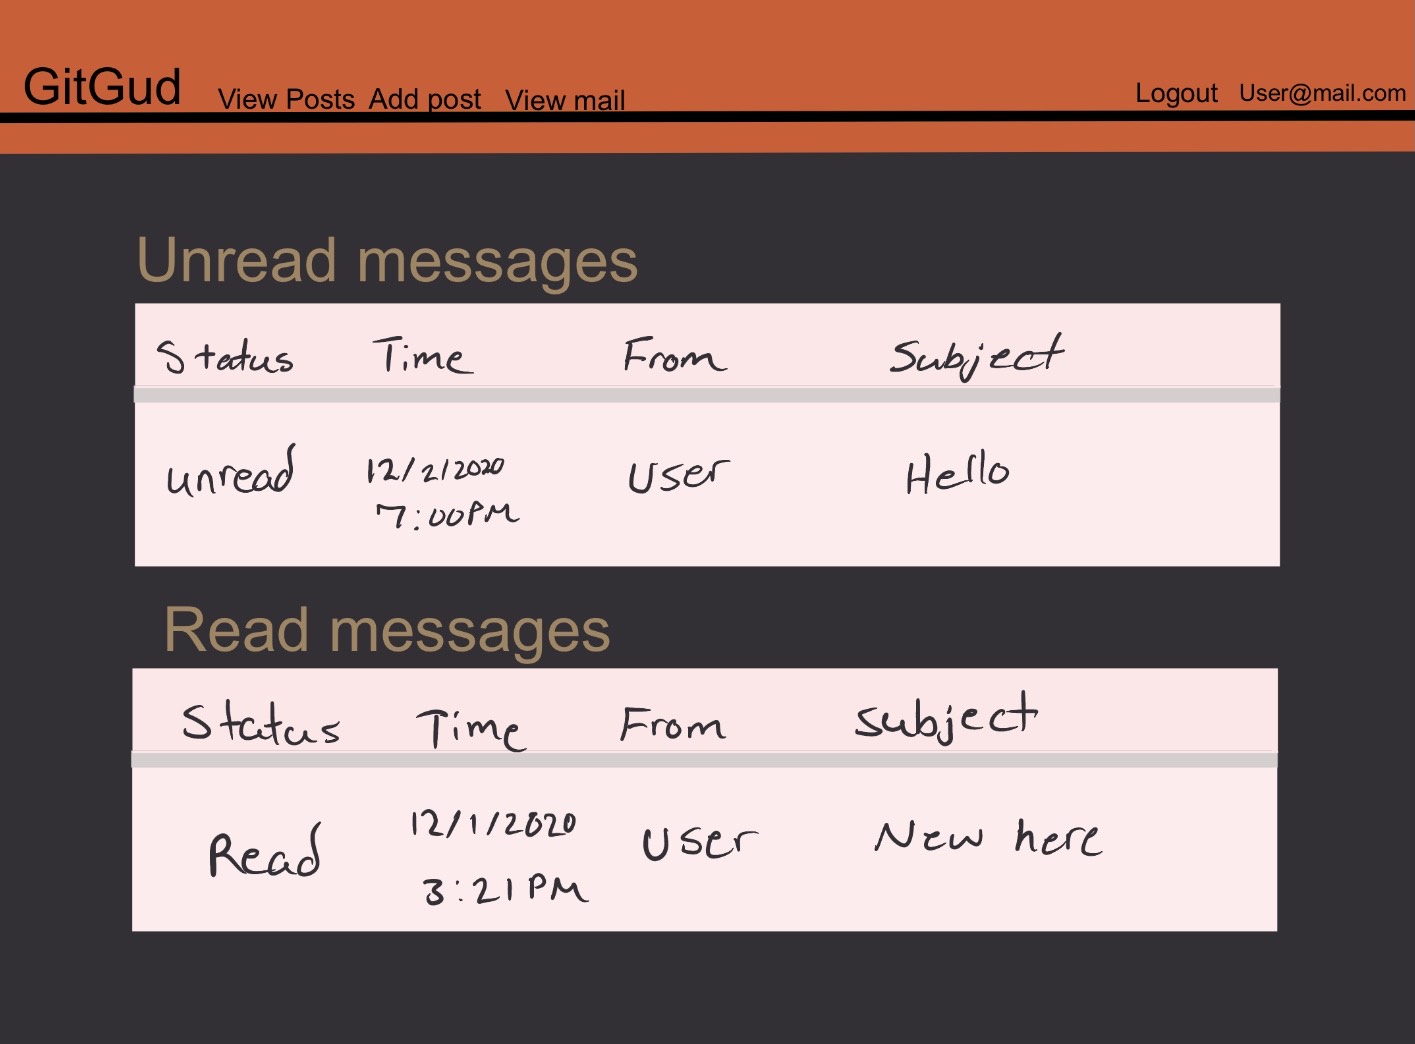 GitGud View Posts Add post View mail Logout User@mail.com
Unread messages
Status Time From Subject
unread 12/2/2020 User Hello
7:00PM
Read messages
Status Time From Subject
Read 12/1/2020 User New here
3:21PM